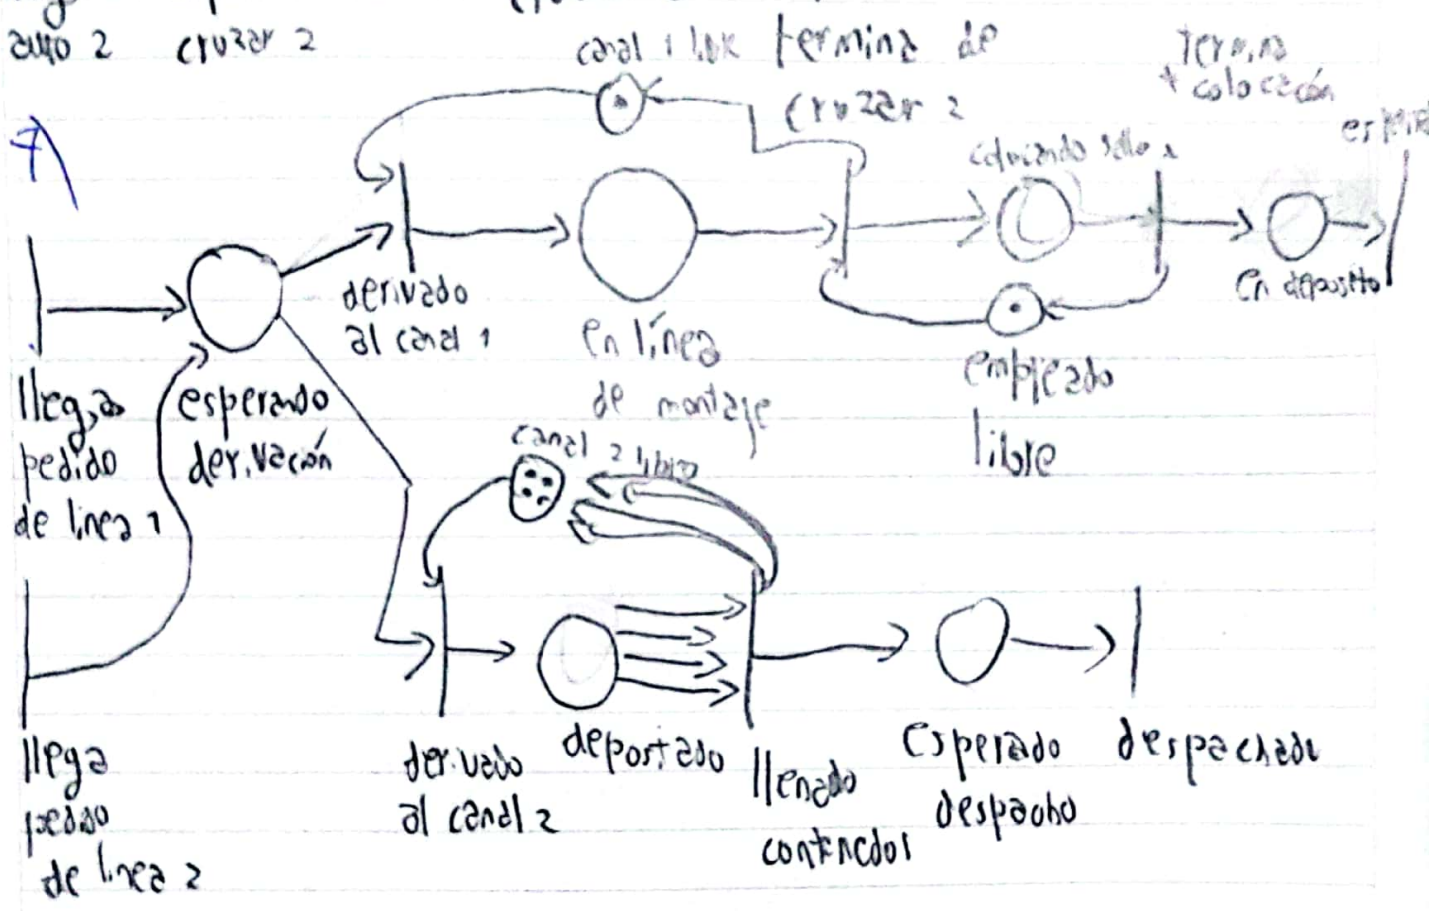 auto 2 cruzar 2
canal 1 termina de
cruzar 2
termina
colocación
7)
colocando sello
derivado
al canal 1
en línea
de montaje
empleado
libre
en deposito
llega
pedido
de linea 1
esperando
derivación
canal 2 libre
llega
pedido
de linea 2
derivado
al canal 2
deportado
llenado
contenedor
esperado
despacho
despachado